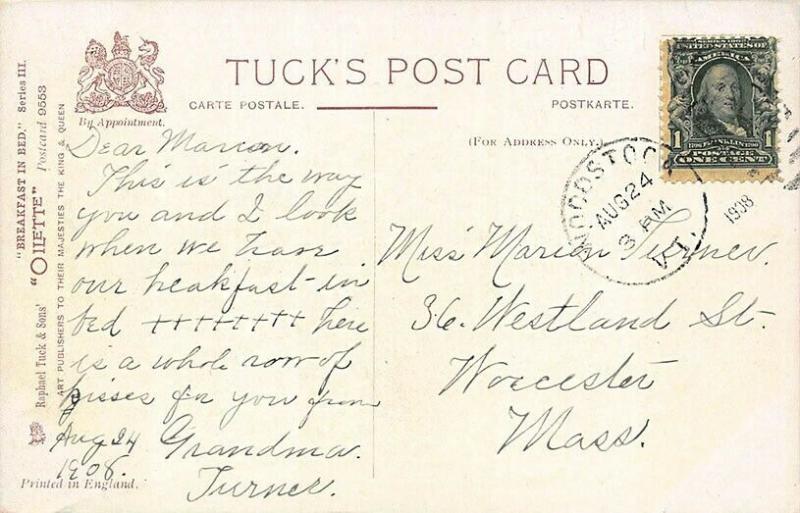 "BREAKFAST IN BED." Series III.
Raphael Tuck & Sons' "OILETTE" Postcard 9553
ART PUBLISHERS TO THEIR MAJESTIES THE KING & QUEEN
By Appointment.
TUCK'S POST CARD
CARTE POSTALE.
POSTKARTE.
(FOR ADDRESS ONLY.)
Dear Marion.
This is the way
you and I look
when we have
our breakfast-in
bed ++++++++ here
is a whole row of
kisses for you from
Aug 24 Grandma
1908. Turner.
Printed in England.
SERIES 1902
UNITED STATES OF
AMERICA
1 1
1706 FRANKLIN 1790
POSTAGE
ONE CENT
WOODSTOCK
AUG 24
3 AM
VT.
1908
Miss Marion Turner.
36. Westland St.
Worcester
Mass.